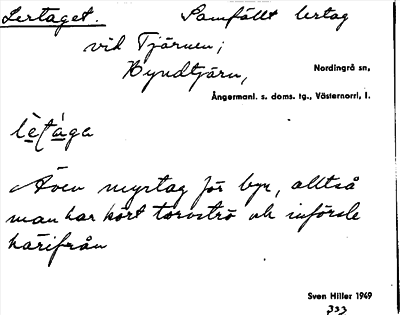 Lertaget. Samfällt lertag
vid Tjärnen;
Nordingrå sn,
Ångermanl. s. doms. tg., Västernorrl, l.
Även myrtag för byn, alltså
man har kört torvströ och
härifrån
Sven Hiller 1949
333